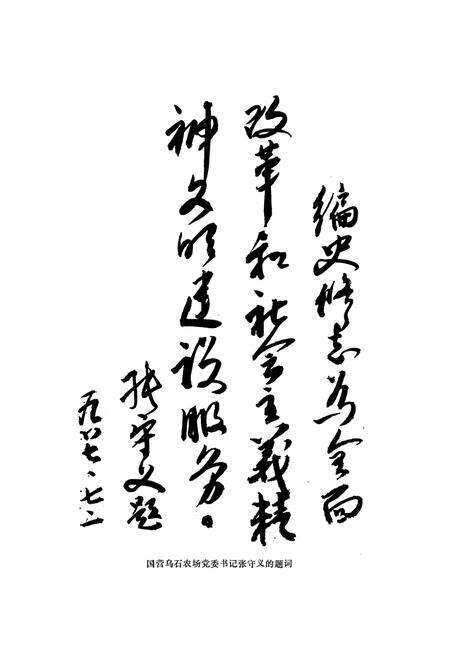 编史修志为全面
改革和社会主义精
神文明建设服务。
张守义题
一九八七、七、二
国营乌石农场党委书记张守义的题词